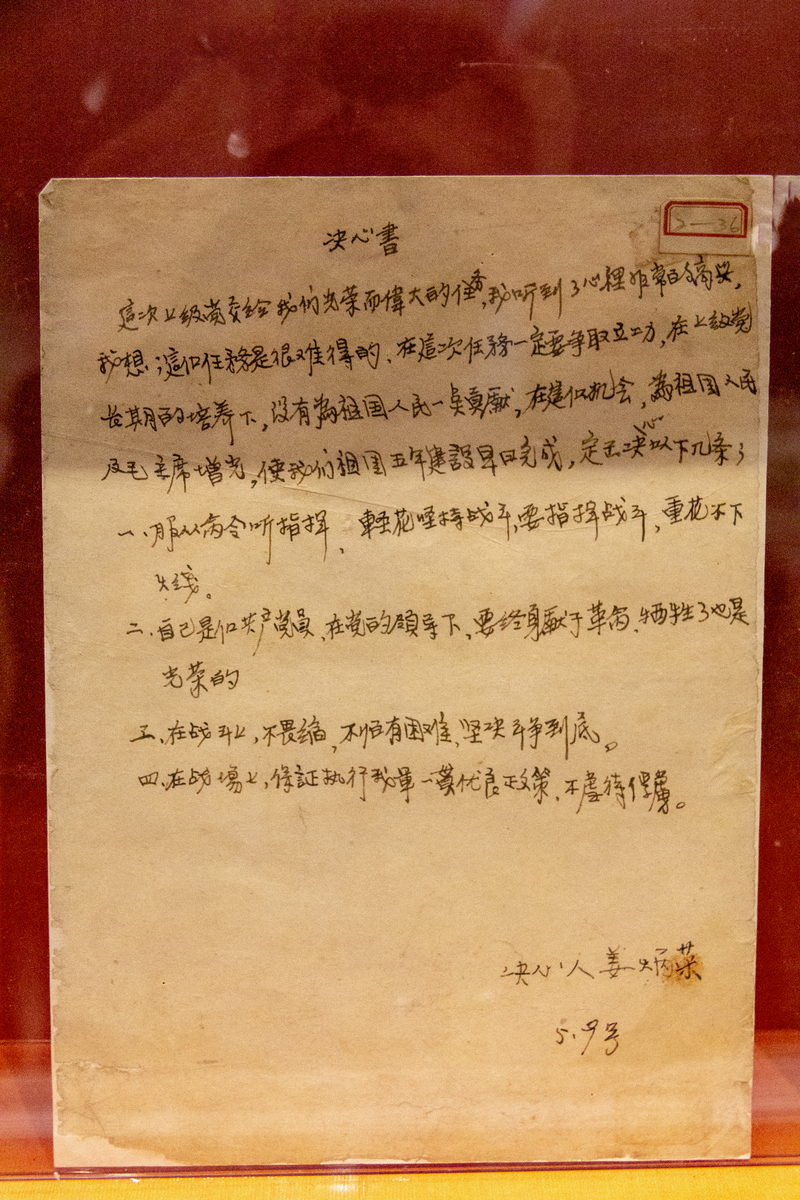 决心書
S—36
這次上级党交给我们光荣而偉大的任務,我听到了心裡非常的高兴,
我想:這个任務是很难得的、在這次任務一定要争取立功,在上级党
长期的培养下,没有為祖国人民一点貢献,在這个机会,為祖国人民
及毛主席增光,使我们祖国五年建設早日完成,定出决心以下几条:
一、服从命令听指挥、轻花坚持战斗,要指挥战斗,重花不下
火线。
二、自己是个共产党员、在党的領导下、要终身献于革命、牺牲了也是
光荣的
三、在战斗上,不畏缩、不怕有困难、坚决斗争到底。
四、在战場上,保証执行我軍一貫优良政策、不虐待俘虜。
决心人 姜炳荣
5.9号